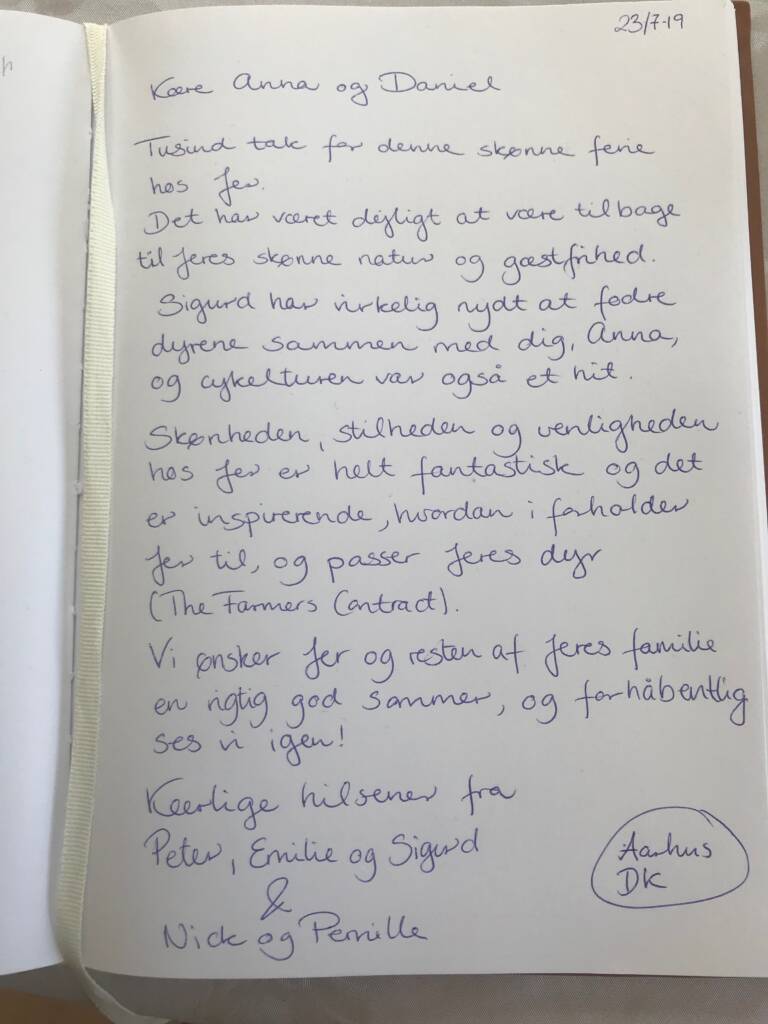 23/7-19
Kære Anna og Daniel
Tusind tak for denne skønne ferie
hos Jer.
Det har været dejligt at være tilbage
til Jeres skønne natur og gæstfrihed.
Sigurd har virkelig nydt at fodre
dyrene sammen med dig, Anna,
og cykelturen var også et hit.
Skønheden, stilheden og venligheden
hos Jer er helt fantastisk og det
er inspirerende, hvordan i forholder
Jer til, og passer Jeres dyr
(The Farmers Contract).
Vi ønsker Jer og resten af Jeres familie
en rigtig god sommer, og forhåbentlig
ses vi igen!
Kærlige hilsener fra
Peter, Emilie og Sigurd
&
Nick og Pernille
Aarhus
DK